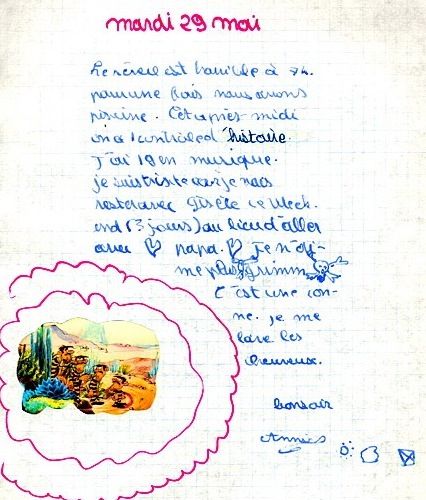 mardi 29 mai
Le réveil est horrible à 7h.
pour une fois nous avons
piscine. Cet après-midi
on a 1 contrôle d'histoire.
J'ai 19 en musique.
je suis triste car je vais
rester avec Gisèle ce week.
end (3 jours) au lieu d'aller
avec papa. Je n'ai-
me plus grimm
C'est une con-
ne. je me
lave les
cheveux.
bonsoir